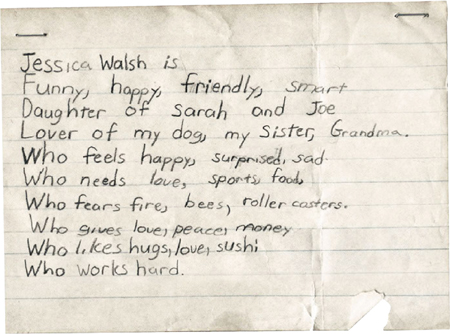 Jessica Walsh is
Funny, happy, friendly, smart
Daughter of Sarah and Joe
Lover of my dog, my Sister, Grandma.
Who feels happy, surprised, sad.
Who needs love, sports, food,
Who fears fire, bees, roller casters.
Who gives love, peace, money
Who likes hugs, love, sushi
Who works hard.